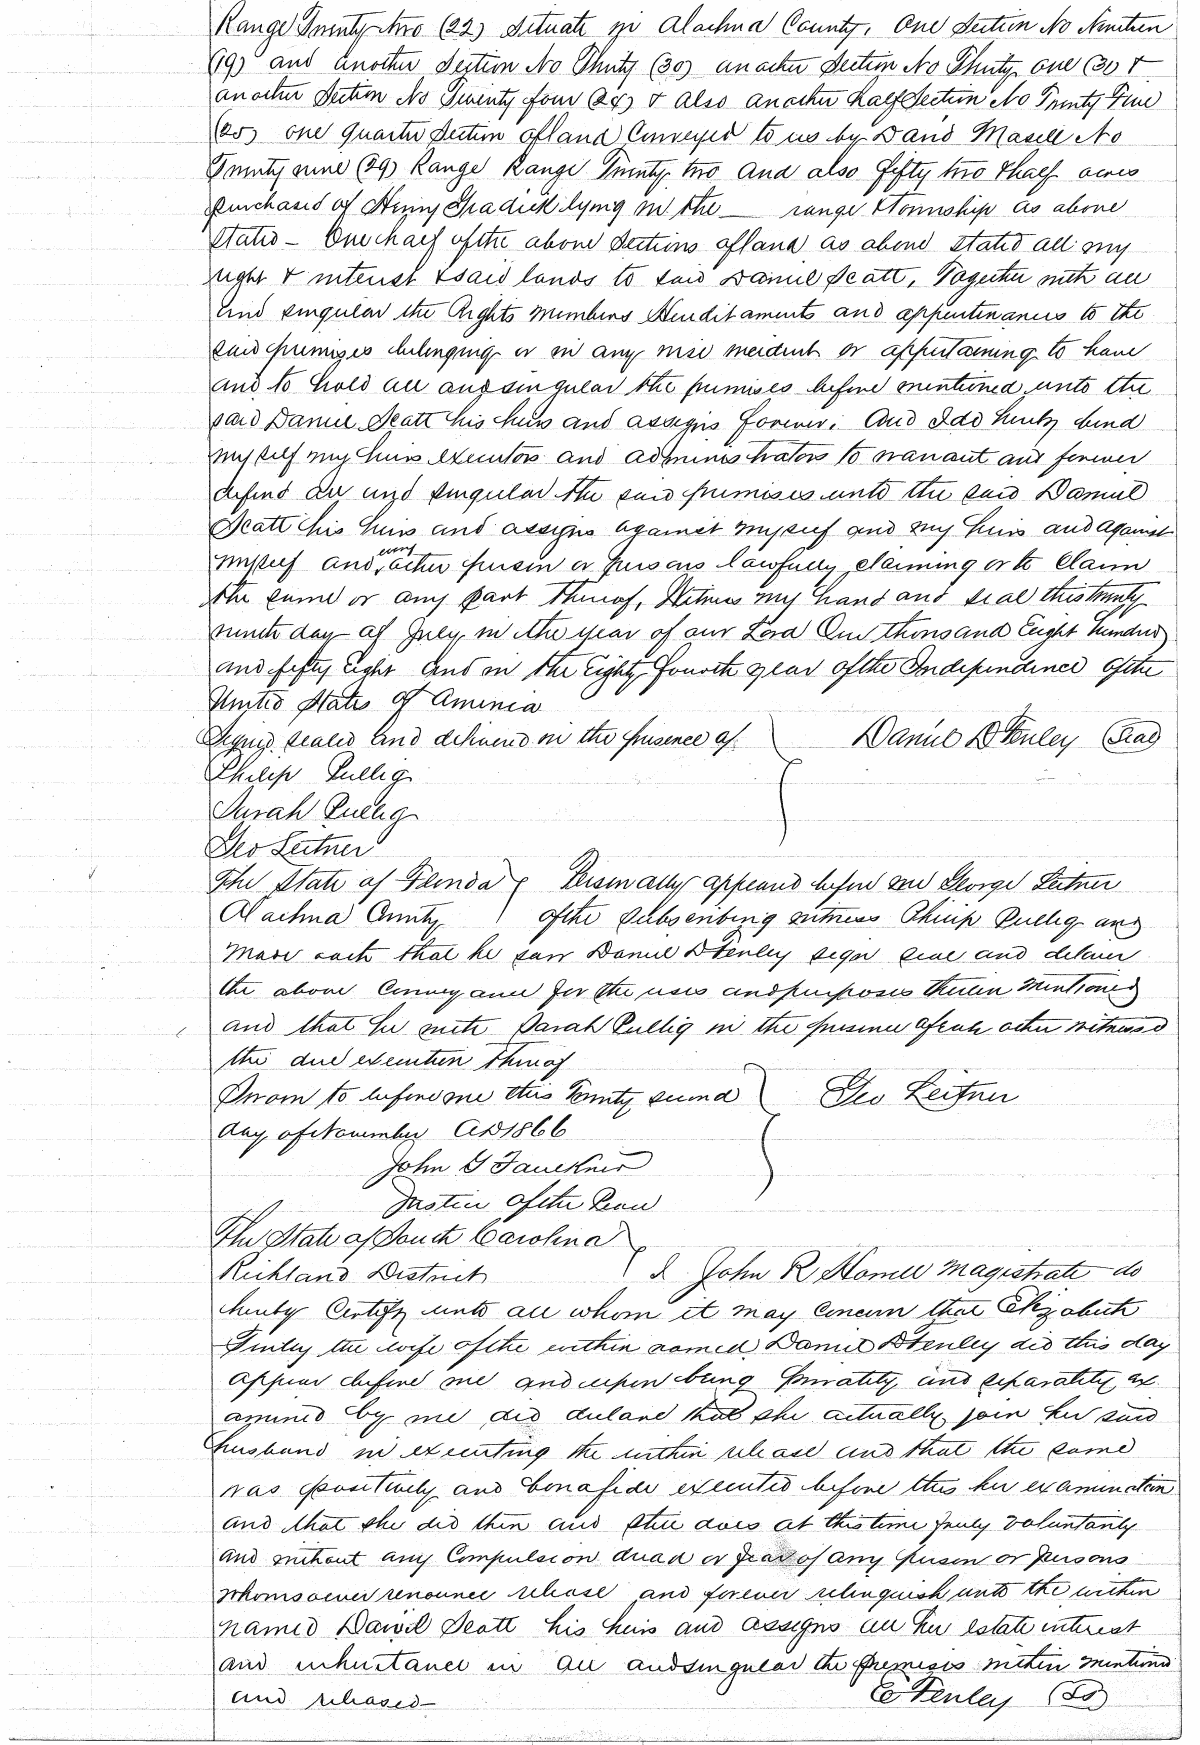 Range Twenty two (22) Situate in Alachua County, One Section No Nineteen
(19) and another Section No Thirty (30) another Section No Thirty one (30 &
another Section No Twenty four (24) & also another half Section No Twenty Five
(25) one quarter Section of land Conveyed to us by David Masell No
Twenty nine (29) Range Range Twenty two and also fifty two & half acres
purchased of Henry Gradick lying in the — range & township as above
Stated – One half of the above Sections of land as above stated all my
right & interest & said lands to said Daniel Scott, Together with all
and singular the Rights members Hereditaments and appertinances to the
said premises belonging or in any wise incident or appertaining to have
and to hold all and singular the premises before mentioned unto the
said Daniel Scott his heirs and assigns forever; And I do hereby bind
myself my heirs executors and administrators to warrant and forever
defend all and singular the said premises unto the said Daniel
Scott his heirs and assigns against myself and my heirs and against
myself and every other person or persons lawfully claiming or to claim
the same or any part thereof, Witness my hand and seal this twenty
ninth day of July in the year of our Lord One thousand Eight hundred
and fifty Eight and in the Eighty fourth year of the Independence of the
United States of America
Signed sealed and delivered in the presence of Daniel D Fenley (Seal)
Philip Pullig
Sarah Pullig
Geo Leitner
The State of Florida Personally appeared before me George Leitner
Alachua County of the Subscribing witness Philip Pullig and
made oath that he saw Daniel D Fenley sign seal and deliver
the above Conveyance for the uses and purposes therein mentioned
and that he with Sarah Pullig in the presence of each other witnessed
the due execution thereof
Sworn to before me this Twenty second Geo Leitner
day of November AD 1866
John G Faulkner
Justice of the Peace
The State of South Carolina
Richland District I John R Howell magistrate do
hereby Certify unto all whom it may Concern that Elizabeth
Finley the wife of the within named Daniel D Fenley did this day
appear before me and upon being Privately and separately ex
amined by me did declare that she actually join her said
husband in executing the within release and that the same
was positively and bonafide executed before this her examination
and that she did then and still does at this time freely voluntarily
and without any Compulsion dread or fear of any person or persons
whomsoever renounce release and forever relinquish unto the within
named Daniel Scott his heirs and assigns all her estate interest
and inheritance in all and singular the premises within mentioned
and released – E Fenley (LS)